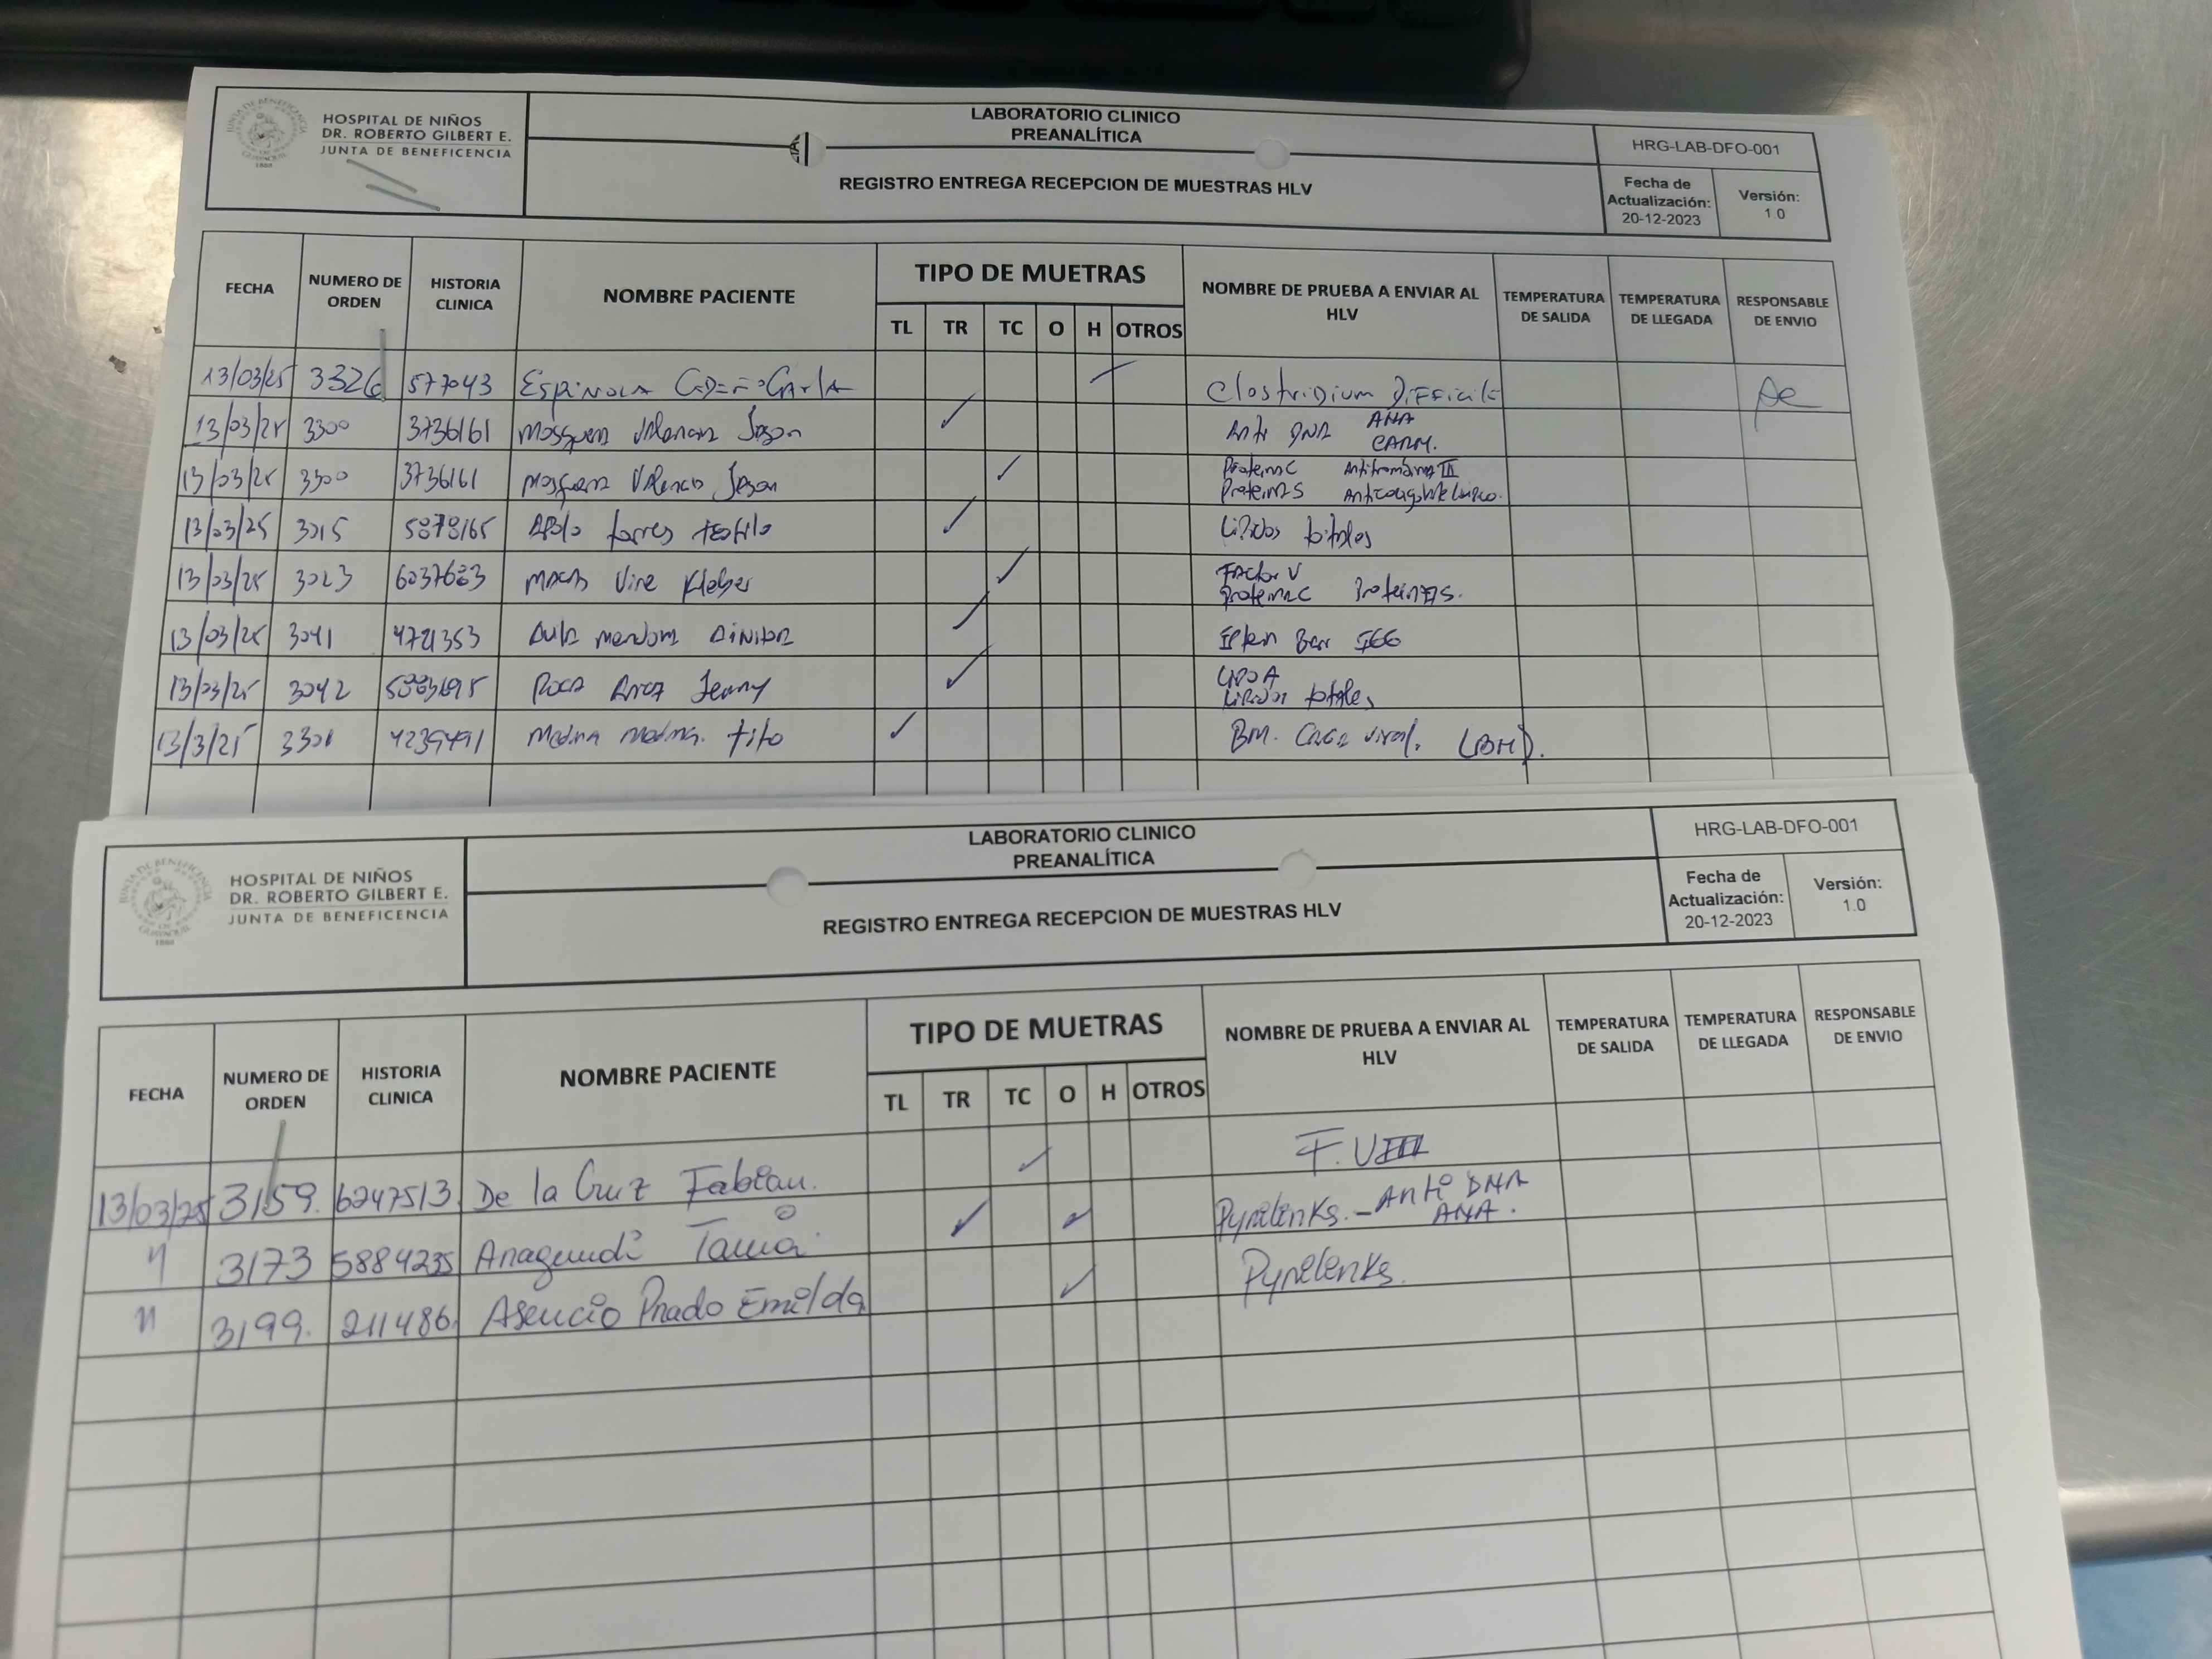 HOSPITAL DE NIÑOS
DR. ROBERTO GILBERT E.
JUNTA DE BENEFICENCIA
LABORATORIO CLINICO
PREANALÍTICA
REGISTRO ENTREGA RECEPCION DE MUESTRAS HLV
HRG-LAB-DFO-001
Fecha de Actualización: 20-12-2023
Versión: 1.0
FECHA NUMERO DE ORDEN HISTORIA CLINICA NOMBRE PACIENTE TIPO DE MUETRAS NOMBRE DE PRUEBA A ENVIAR AL HLV TEMPERATURA DE SALIDA TEMPERATURA DE LLEGADA RESPONSABLE DE ENVIO
TL TR TC O H OTROS
13/03/25 3326 577043 Espinola Cedeño Carla Clostridium Difficile
13/03/25 3300 3736161 Jason Anti DNA ANA
13/03/25 3300 3736161 Jason Proteina C Antitrombina III
Proteina S
13/03/25 3015 5878165 Apolo torres teofilo Lipidos totales
13/03/25 3023 Kleber Factor V
Proteina C Proteina S.
13/03/25 3041 Barr IGG
13/03/25 3042 Jenny Lipo A
Lipidos totales
13/3/25 4239491 Medina medina. tito BM. Carga viral.
HOSPITAL DE NIÑOS
DR. ROBERTO GILBERT E.
JUNTA DE BENEFICENCIA
LABORATORIO CLINICO
PREANALÍTICA
REGISTRO ENTREGA RECEPCION DE MUESTRAS HLV
HRG-LAB-DFO-001
Fecha de Actualización: 20-12-2023
Versión: 1.0
FECHA NUMERO DE ORDEN HISTORIA CLINICA NOMBRE PACIENTE TIPO DE MUETRAS NOMBRE DE PRUEBA A ENVIAR AL HLV TEMPERATURA DE SALIDA TEMPERATURA DE LLEGADA RESPONSABLE DE ENVIO
TL TR TC O H OTROS
13/03/25 3159. 6247513. De la Cruz Fabian. F. VIII
" 3173 5884235 Tania Pyrilenks. - Anti DNA
ANA.
" 3199. 211486. Asencio Prado Emilda Pyrilenks.